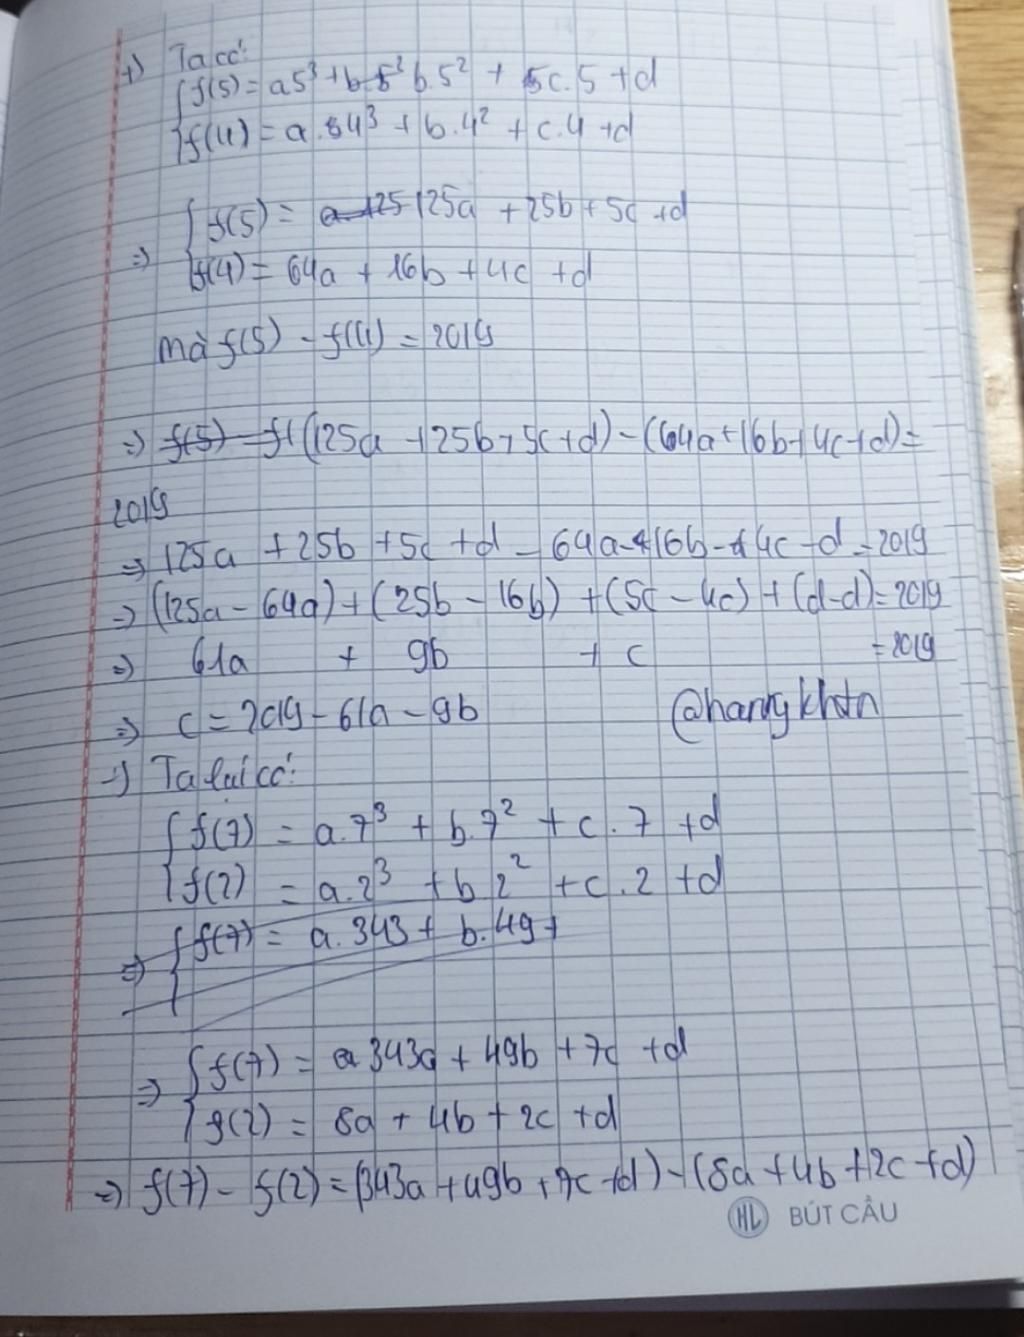 +) Ta có:
f(5) = a5³ + b.5² b.5² + 5c.5 + d
f(4) = a.84³ + b.4² + c.4 + d
=> f(5) = a 125 125a + 25b + 5c + d
f(4) = 64a + 16b + 4c + d
mà f(5) - f(4) = 2019
=> f(5) - f( (125a + 25b + 5c + d) - (64a + 16b + 4c + d) =
2019
=> 125a + 25b + 5c + d - 64a - 16b - 4c - d = 2019
=> (125a - 64a) + (25b - 16b) + (5c - 4c) + (d - d) = 2019
=> 61a + 9b + c = 2019
=> c = 2019 - 61a - 9b @hangkhtn
-) Ta lại có:
f(7) = a.7³ + b.7² + c.7 + d
f(2) = a.2³ + b 2² + c.2 + d
=> f(7) = a.343 + b.49 +
=> f(7) = a 343a + 49b + 7c + d
f(2) = 8a + 4b + 2c + d
=> f(7) - f(2) = (343a + 49b + 7c + d) - (8a + 4b + 2c + d)
HL BÚT CÂU